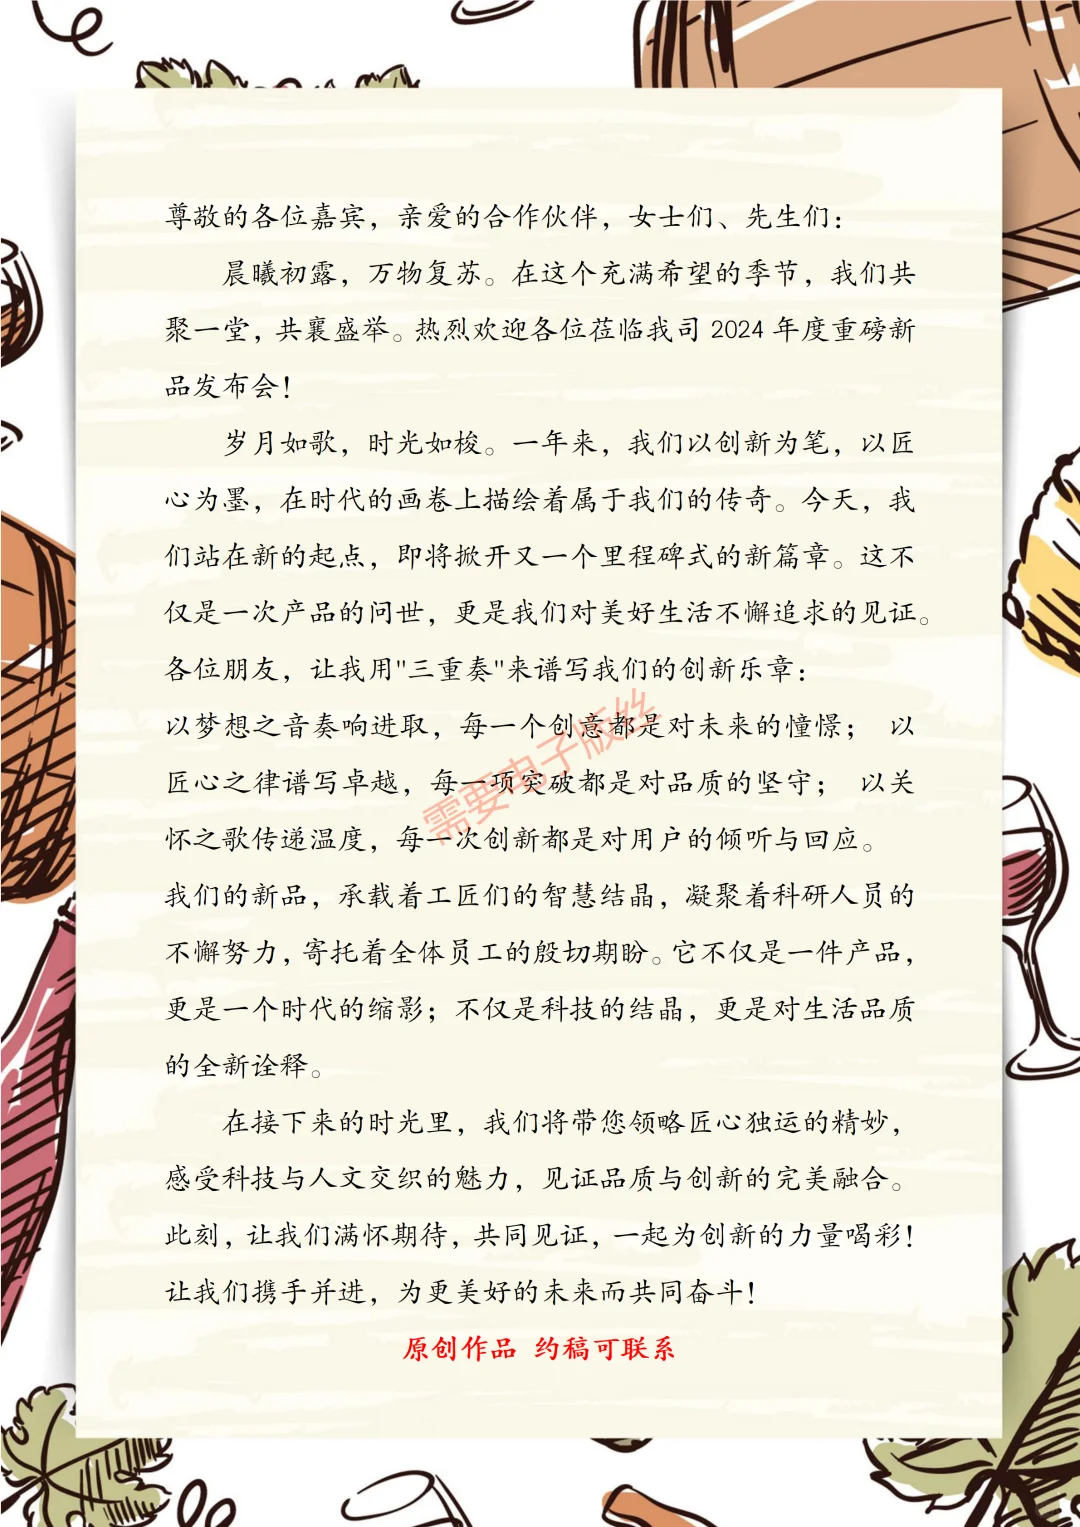 尊敬的各位嘉宾，亲爱的合作伙伴，女士们、先生们：
晨曦初露，万物复苏。在这个充满希望的季节，我们共
聚一堂，共襄盛举。热烈欢迎各位莅临我司 2024 年度重磅新
品发布会！
岁月如歌，时光如梭。一年来，我们以创新为笔，以匠
心为墨，在时代的画卷上描绘着属于我们的传奇。今天，我
们站在新的起点，即将掀开又一个里程碑式的新篇章。这不
仅是一次产品的问世，更是我们对美好生活不懈追求的见证。
各位朋友，让我用"三重奏"来谱写我们的创新乐章：
以梦想之音奏响进取，每一个创意都是对未来的憧憬； 以
匠心之律谱写卓越，每一项突破都是对品质的坚守； 以关
怀之歌传递温度，每一次创新都是对用户的倾听与回应。
我们的新品，承载着工匠们的智慧结晶，凝聚着科研人员的
不懈努力，寄托着全体员工的殷切期盼。它不仅是一件产品，
更是一个时代的缩影；不仅是科技的结晶，更是对生活品质
的全新诠释。
在接下来的时光里，我们将带您领略匠心独运的精妙，
感受科技与人文交织的魅力，见证品质与创新的完美融合。
此刻，让我们满怀期待，共同见证，一起为创新的力量喝彩！
让我们携手并进，为更美好的未来而共同奋斗！
原创作品 约稿可联系
需要电子版丝